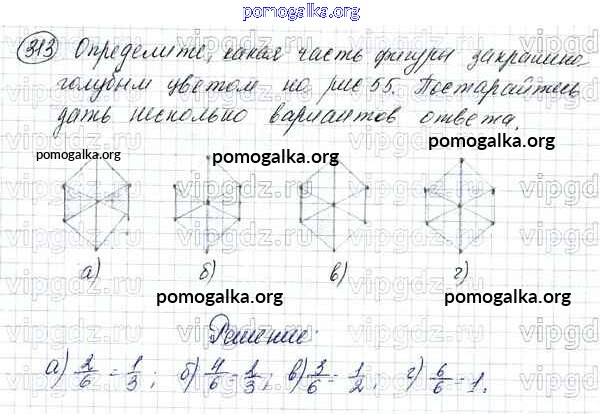 pomogalka.org
313 Определите, какая часть фигуры закрашено
голубым цветом на рис 55. Постарайтесь
дать несколько вариантов ответа.
pomogalka.org pomogalka.org pomogalka.org pomogalka.org
а) б) в) г)
pomogalka.org pomogalka.org
Решение:
а) 2/6 = 1/3; б) 4/6 = 2/3; в) 3/6 = 1/2; г) 6/6 = 1.